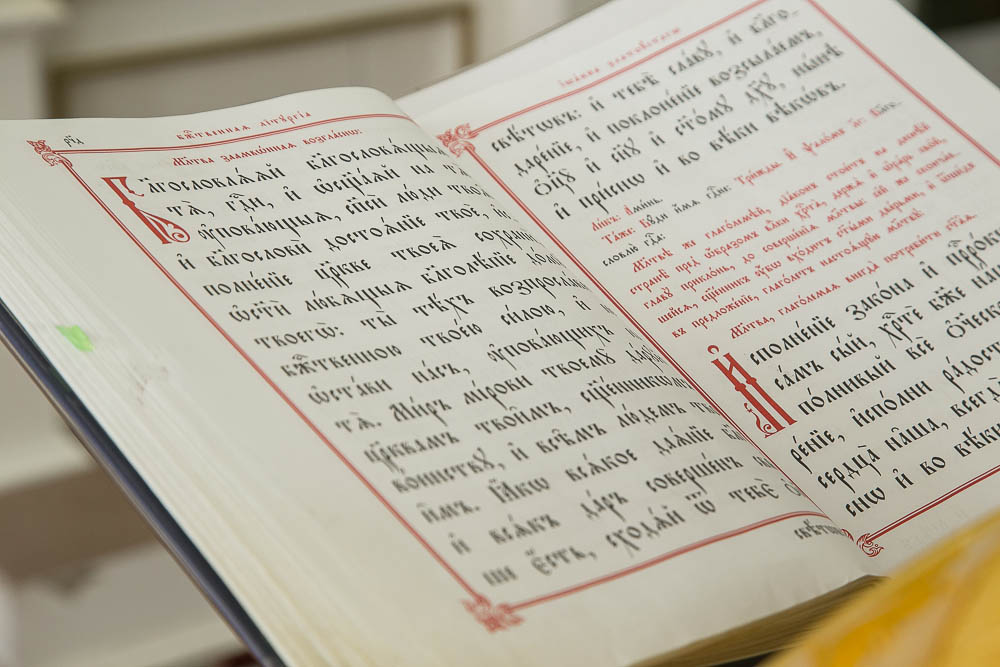 бж҃твенная літꙋргіа
Мл҃тва заамвѡнная возгласнѡ:
Бл҃гословлѧ́ѧй бл҃гословѧ́щыѧ
тѧ̀, гдⷭ҇и, и҆ ѡ҆сщ҃а́ѧй на тѧ̀
ᲂу҆пова́ющыѧ, сп҃сѝ лю́ди твоѧ̑
и҆ бл҃гословѝ достоѧ́нїе твоѐ, и҆с-
полне́нїе цр҃кве твоеѧ̀ сохранѝ
ѡ҆ст҃ѝ лю́бѧщыѧ бл҃голѣ́пїе до́мꙋ
твоегѡ̀: ты̀ тѣ́хъ возпросла́ви
бжⷭ҇твенною твое́ю си́лою, и҆
ѡ҆ста́ви на́съ, ᲂу҆пова́ющихъ
тѧ̀. Ми́ръ мі́рови твоемꙋ̀ да́рꙋй
цр҃квамъ твои̑мъ, сщ҃е́нникѡмъ
во́инствꙋ, и҆ всѣ̑мъ лю́демъ тво-
и҆̀мъ. Ꙗ҆́кѡ всѧ́кое даѧ́нїе
и҆ всѧ́къ да́ръ соверше́нъ
ше є҆́сть, сходѧ́й ѿ тебє̀
свѣ́тѡ
і҆ѡа́нна златоꙋ́стагѡ
свѣ́тѡвъ: и҆ тебѣ̀ сла́вꙋ, и҆ бл҃го-
даре́нїе, и҆ поклоне́нїе возсыла́емъ,
ѻ҆ц҃ꙋ̀ и҆ сн҃ꙋ и҆ ст҃о́мꙋ дх҃ꙋ, ны́нѣ
и҆ при́снѡ и҆ во вѣ́ки вѣкѡ́въ.
Ли́къ: А҆ми́нь.
Та́же: Бꙋ́ди и҆́мѧ гдⷭ҇не: Три́жды. И҆ ѱало́мъ лг҃: Бл҃го-
словлю̀ гдⷭ҇а:
Мл҃твѣ же глаго́лемѣй, дїа́конъ стои́тъ на деснѣ́й
странѣ̀ пред̾ ѡ҆́бразомъ влⷣки хрⷭ҇та̀, держѧ̀ и҆ ѻ҆ра́рь сво́й,
главꙋ̀ прикло́нь, до соверше́нїѧ мл҃твы: се́й же сконча́в-
шейсѧ, сщ҃е́нникъ ᲂу҆́бѡ вхо́дитъ ст҃ы́ми две́рьми, и҆ ѿше́дъ
въ предложе́нїе, глаго́летъ настоѧ́щꙋю мл҃твꙋ:
Мл҃тва, глаго́лемаѧ внегда̀ потреби́ти ст҃а̑ѧ.
И҆сполне́нїе зако́на и҆ прⷪ҇ро́кѡвъ
са́мъ сы́й, хрⷭ҇тѐ бж҃е
по́лнивый всѐ ѻ҆те́ческое
ре́нїе, и҆спо́лни ра́дости
сердца̀ на̑ша, всегда̀
снѡ и҆ во вѣ́ки